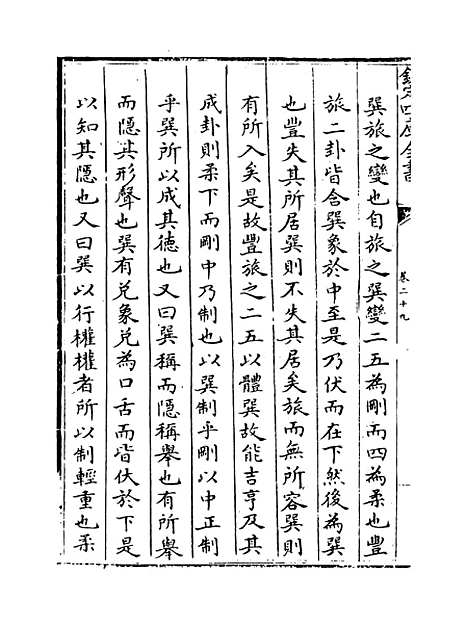 欽定四庫全書
卷二十九
巽旅之變也自旅之巽變二五為剛而四為柔也豐
旅二卦皆含巽象於中至是乃伏而在下然後為巽
也豐失其所居巽則不失其居矣旅而無所容巽則
有所入矣是故豐旅之二五以體巽故能吉亨及其
成卦則柔下而剛中乃制也以巽制乎剛以中正制
乎巽所以成其德也又曰巽稱而隱稱舉也有所舉
而隱其形聲也巽有兌象兌為口舌而皆伏於下是
以知其隱也又曰巽以行權權者所以制輕重也柔